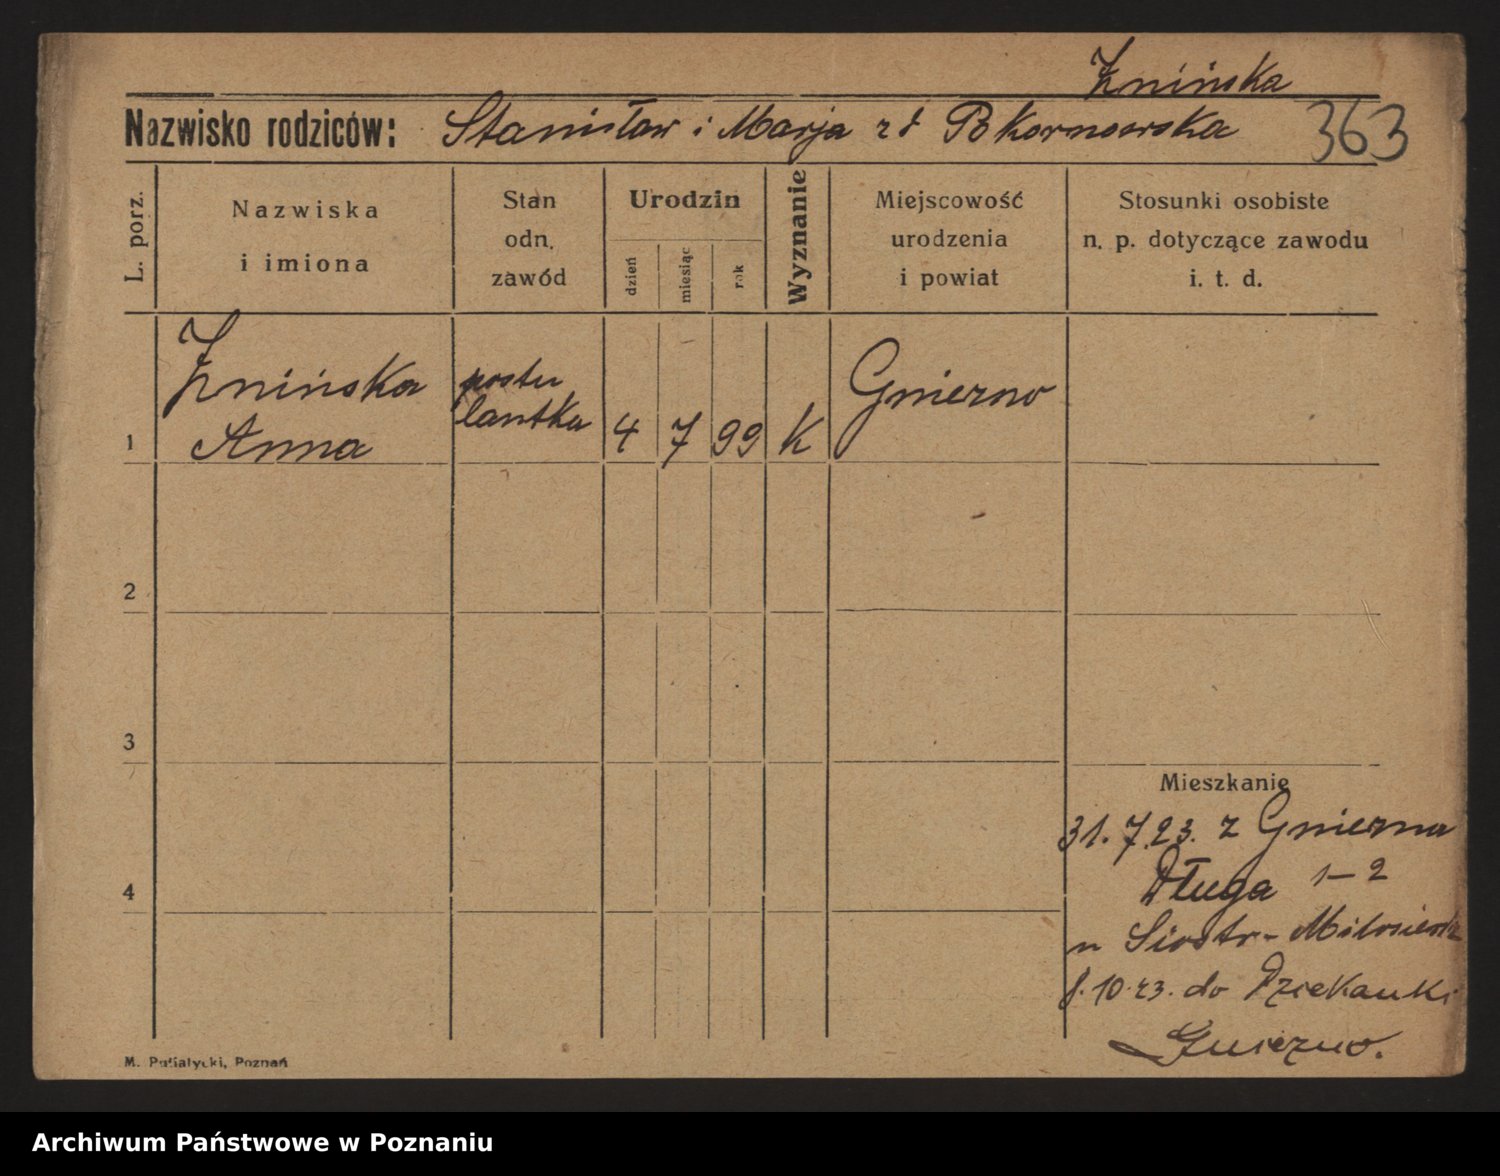 Żnińska
Nazwisko rodziców: Stanisław i Marja z d
363
L. porz.
Nazwiska
i imiona
Stan
odn.
zawód
Urodzin
dzień
miesiąc
rok
Wyznanie
Miejscowość
urodzenia
i powiat
Stosunki osobiste
n. p. dotyczące zawodu
i. t. d.
1
Żnińska
Anna
postu
lantka
4 7 99 K
Gniezno
2
3
4
Mieszkanie
31.7.23. z Gniezna
Długa 1-2
u Siostr-
10.23. do Dziekanki
Gniezno.
M. Putiatycki, Poznań
Archiwum Państwowe w Poznaniu